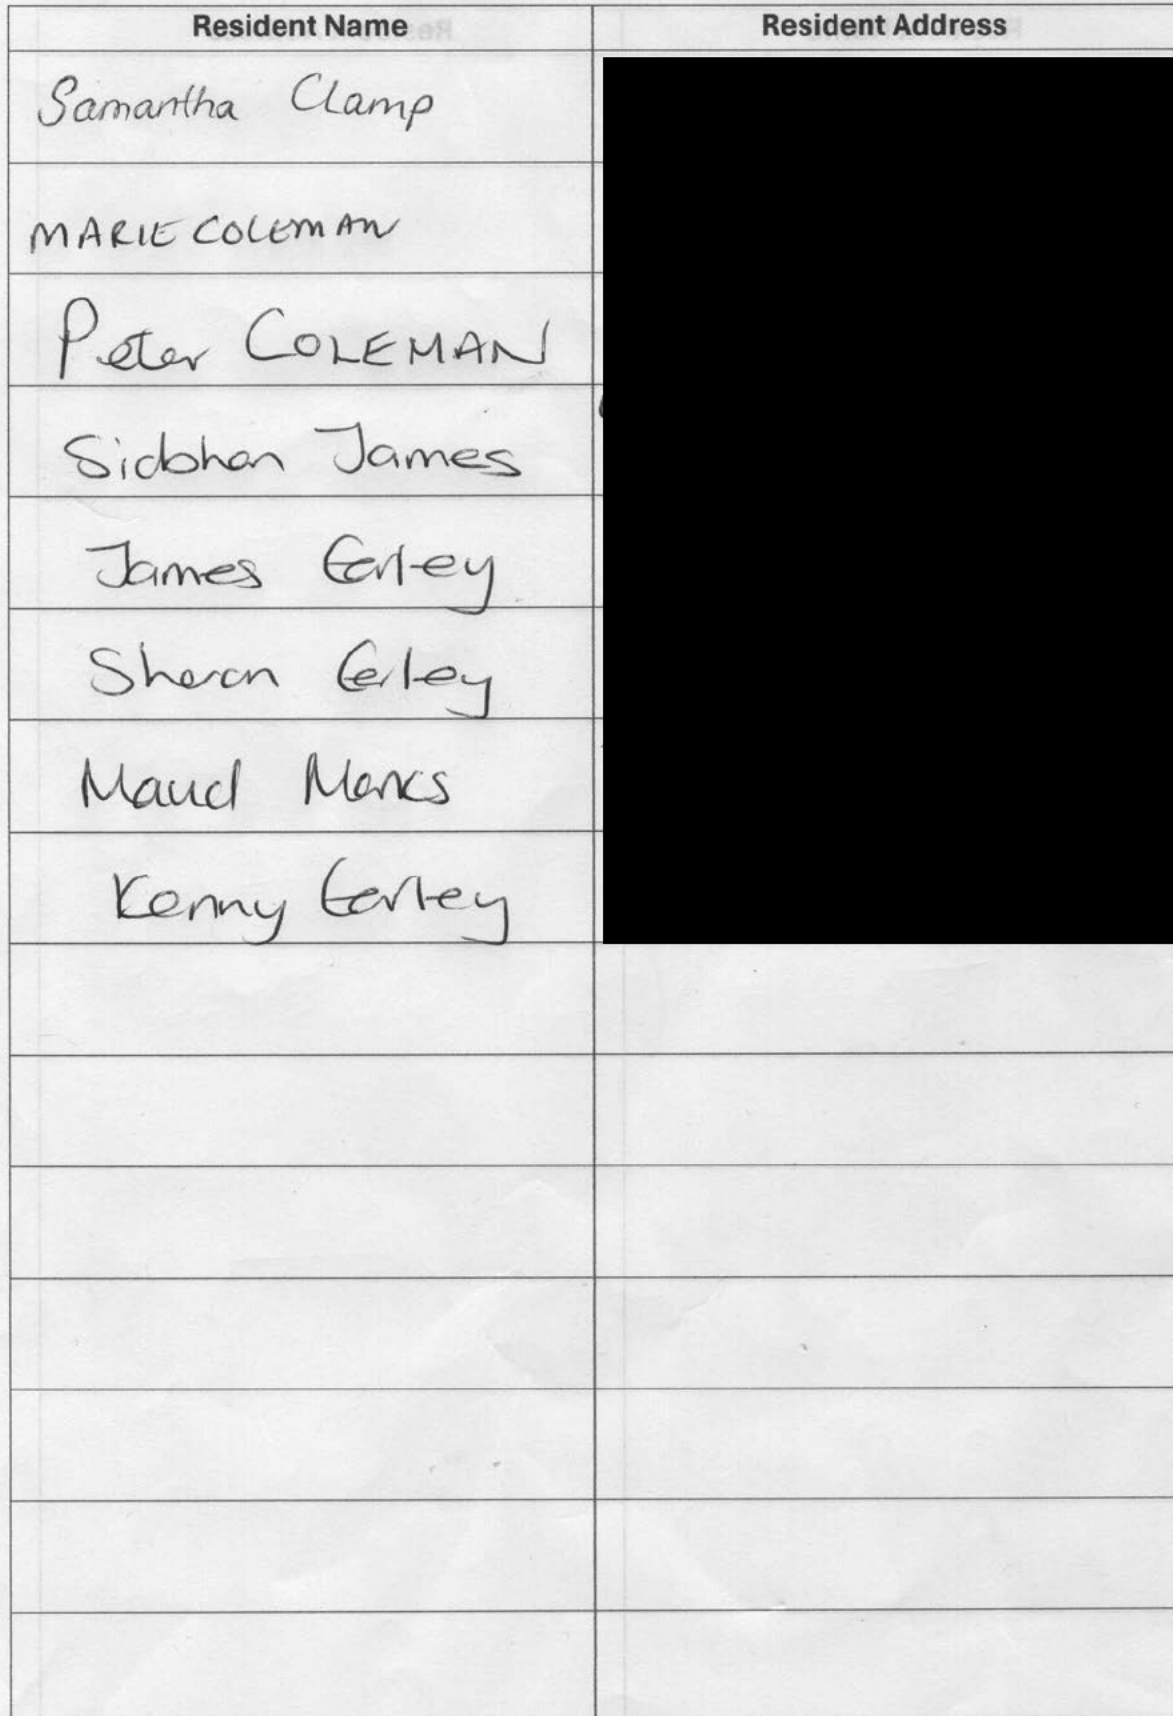 Resident Name Resident Address
Samantha Clamp
MARIE COLEMAN
Peter COLEMAN
Siobhan James
James Earley
Sharon Earley
Maud Marks
Kenny Earley